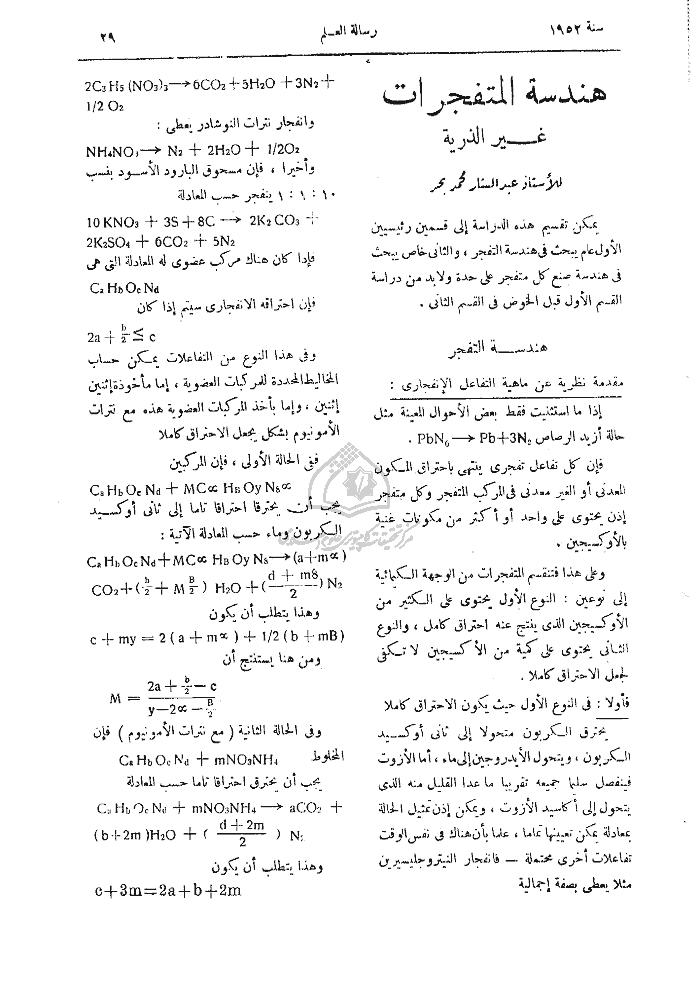 سنة ١٩٥٢
رسالة العلم
٢٩
هندسة المتفجرات
غير الذرية
للأستاذ عبد الستار محمد بحر
يمكن تقسيم هذه الدراسة إلى قسمين رئيسيين
الأول عام يبحث فى هندسة التفجر ، والثانى خاص يبحث
فى هندسة صنع كل متفجر على حدة ولابد من دراسة
القسم الأول قبل الخوض فى القسم الثانى .
هندسة التفجر
مقدمة نظرية عن ماهية التفاعل الإنفجارى :
إذا ما استثنيت فقط بعض الأحوال المعينة مثل
حالة أزيد الرصاص PbN6 ⟶ Pb+3N2 .
فإن كل تفاعل تفجرى ينتهى باحتراق المكون
المعدنى أو الغير معدنى فى المركب المتفجر وكل متفجر
إذن يحتوى على واحد أو أكثر من مكونات غنية
بالأوكسيجين .
وعلى هذا فتنقسم المتفجرات من الوجهة الكيمائية
إلى نوعين : النوع الأول يحتوى على الكثير من
الأوكسيجين الذى ينتج عنه احتراق كامل ، والنوع
الثانى يحتوى على كمية من الأكسيجين لا تكفى
لجعل الاحتراق كاملا .
فأولا : فى النوع الأول حيث يكون الاحتراق كاملا
يحترق الكربون متحولا إلى ثانى أوكسيد
الكربون ، ويتحول الأيدروجين إلى ماء ، أما الأزوت
فينفصل سلبا جميعه تقريبا ما عدا القليل منه الذى
يتحول إلى أكاسيد الأزوت ، ويمكن إذن تمثيل الحالة
بمعادلة يمكن تعيينها تماما ، علما بأن هناك فى نفس الوقت
تفاعلات أخرى محتملة — فانفجار النيتروجليسيرين
مثلا يعطى بصفة إجمالية
2C3 H5 (NO3)3⟶6CO2+5H2O +3N2+
1/2 O2
وانفجار نترات النوشادر يعطى :
NH4NO3⟶ N2 + 2H2O + 1/2O2
وأخيرا ، فإن مسحوق البارود الأسود بنسب
١٠ : ١ : ١ ينفجر حسب المعادلة
10 KNO3 + 3S+8C ⟶ 2K2 CO3 +
2K2SO4 + 6CO2 + 5N2
فإذا كان هناك مركب عضوى له المعادلة التى هى
Ca Hb Oc Nd
فإن احتراقه الانفجارى سيتم إذا كان
2a + b/2 ≤ c
وفى هذا النوع من التفاعلات يمكن حساب
المخاليط المحددة للمركبات العضوية ، إما مأخوذة إثنين
إثنين ، وإما بأخذ المركبات العضوية هذه مع نترات
الأمونيوم بشكل يجعل الاحتراق كاملا
ففى الحالة الأولى ، فإن المركبين
Ca Hb Oc Nd + MC∝ HB Oy N8∝
يجب أن يحترقا احتراقا تاما إلى ثانى أوكسيد
الكربون وماء حسب المعادلة الآتية :
Ca Hb Oc Nd+MC∝ HB Oy N8⟶(a+m∝)
CO2+(b/2 + M B/2) H2O +(d + m8/2) N2
وهذا يتطلب أن يكون
c + my = 2 ( a + m∝ ) + 1/2 ( b + mB)
ومن هنا يستنتج أن
M = (2a + b/2 — c)/(y—2∝ — B/2)
وفى الحالة الثانية ( مع نترات الأمونيوم ) فإن
المخلوط Ca Hb Oc Nd + mNO3NH4
يجب أن يحترق احتراقا تاما حسب المعادلة
Ca Hb Oc Nd + mNO3NH4 ⟶ aCO2 +
(b+2m)H2O + ( d+2m/2 ) N2
وهذا يتطلب أن يكون
c+3m=2a+b+2m